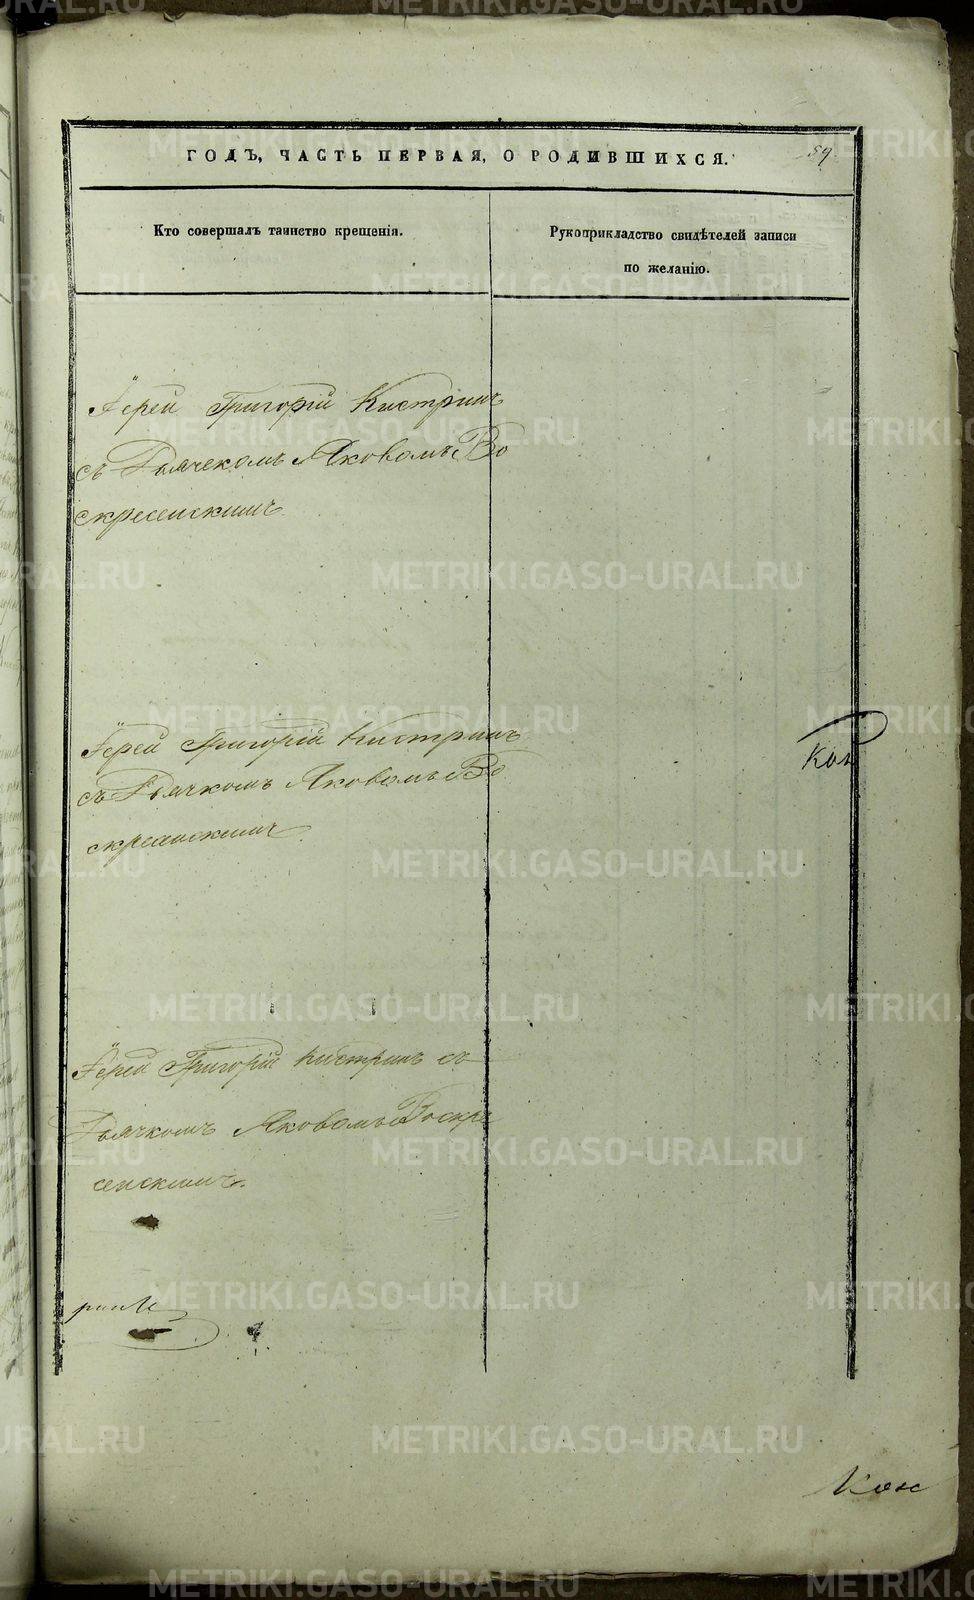 ГОДЪ, ЧАСТЬ ПЕРВАЯ, О РОДИВШИХСЯ.
59
Кто совершалъ таинство крещенія.
Рукоприкладство свидѣтелей записи
по желанію.
Іерей Григорій Кистринъ
съ Дьячкомъ Яковомъ Во
скресенскимъ
Іерей Григорій Кистринъ
съ Дьячкомъ Яковомъ Во
скресенскимъ
Іерей Григорій Кистринъ съ
Дьячкомъ Яковомъ Воскре
сенскимъ.
METRIKI.GASO-URAL.RU